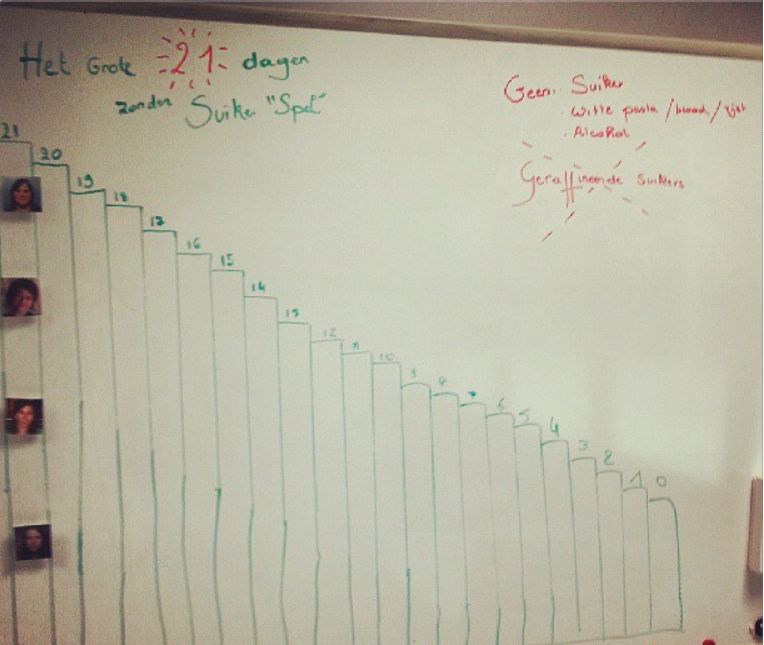 Het Grote 21 dagen
zonder Suiker "Spel"
Geen: Suiker
. witte pasta / brood / rijst
. Alcohol
Geraffineerde Suikers
21
20
19
18
17
16
15
14
13
12
11
10
9
8
7
6
5
4
3
2
1
0